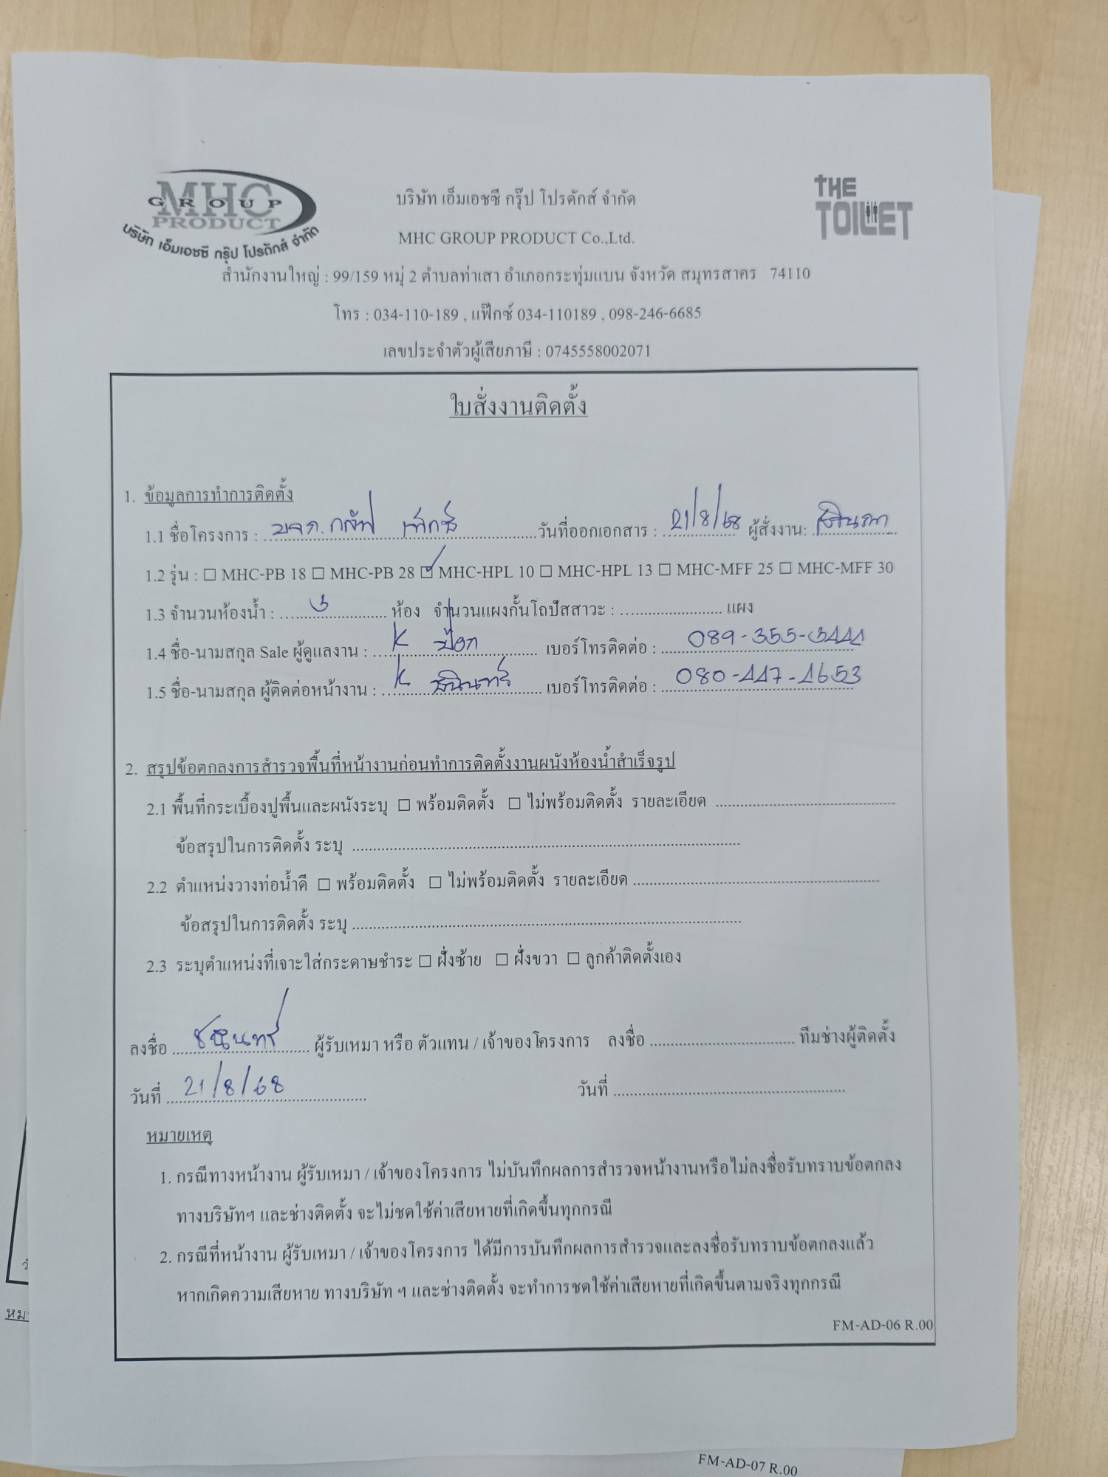 MHC
GROUP
PRODUCT
บริษัท เอ็มเอชซี กรุ๊ป โปรดักส์ จำกัด
บริษัท เอ็มเอชซี กรุ๊ป โปรดักส์ จำกัด
MHC GROUP PRODUCT Co.,Ltd.
THE
TOILET
สำนักงานใหญ่ : 99/159 หมู่ 2 ตำบลท่าเสา อำเภอกระทุ่มแบน จังหวัด สมุทรสาคร 74110
โทร : 034-110-189 , แฟ็กซ์ 034-110189 , 098-246-6685
เลขประจำตัวผู้เสียภาษี : 0745558002071
ใบสั่งงานติดตั้ง
1. ข้อมูลการทำการติดตั้ง
1.1 ชื่อโครงการ : วันที่ออกเอกสาร : 21/8/68 ผู้สั่งงาน:
1.2 รุ่น : ☐ MHC-PB 18 ☐ MHC-PB 28 ☑ MHC-HPL 10 ☐ MHC-HPL 13 ☐ MHC-MFF 25 ☐ MHC-MFF 30
1.3 จำนวนห้องน้ำ : ห้อง จำนวนแผงกั้นโถปัสสาวะ : แผง
1.4 ชื่อ-นามสกุล Sale ผู้ดูแลงาน : K เบอร์โทรติดต่อ :
1.5 ชื่อ-นามสกุล ผู้ติดต่อหน้างาน : K ชนินทร์ เบอร์โทรติดต่อ : 080-447-1653
2. สรุปข้อตกลงการสำรวจพื้นที่หน้างานก่อนทำการติดตั้งงานผนังห้องน้ำสำเร็จรูป
2.1 พื้นที่กระเบื้องปูพื้นและผนังระบุ ☐ พร้อมติดตั้ง ☐ ไม่พร้อมติดตั้ง รายละเอียด
ข้อสรุปในการติดตั้ง ระบุ
2.2 ตำแหน่งวางท่อน้ำดี ☐ พร้อมติดตั้ง ☐ ไม่พร้อมติดตั้ง รายละเอียด
ข้อสรุปในการติดตั้ง ระบุ
2.3 ระบุตำแหน่งที่เจาะใส่กระดาษชำระ ☐ ฝั่งซ้าย ☐ ฝั่งขวา ☐ ลูกค้าติดตั้งเอง
ลงชื่อ ชนินทร์ ผู้รับเหมา หรือ ตัวแทน / เจ้าของโครงการ ลงชื่อ ทีมช่างผู้ติดตั้ง
วันที่ 21/8/68 วันที่
หมายเหตุ
1. กรณีทางหน้างาน ผู้รับเหมา / เจ้าของโครงการ ไม่บันทึกผลการสำรวจหน้างานหรือไม่ลงชื่อรับทราบข้อตกลง
ทางบริษัทฯ และช่างติดตั้ง จะไม่ชดใช้ค่าเสียหายที่เกิดขึ้นทุกกรณี
2. กรณีที่หน้างาน ผู้รับเหมา / เจ้าของโครงการ ได้มีการบันทึกผลการสำรวจและลงชื่อรับทราบข้อตกลงแล้ว
หากเกิดความเสียหาย ทางบริษัท ฯ และช่างติดตั้ง จะทำการชดใช้ค่าเสียหายที่เกิดขึ้นตามจริงทุกกรณี
FM-AD-06 R.00
FM-AD-07 R.00